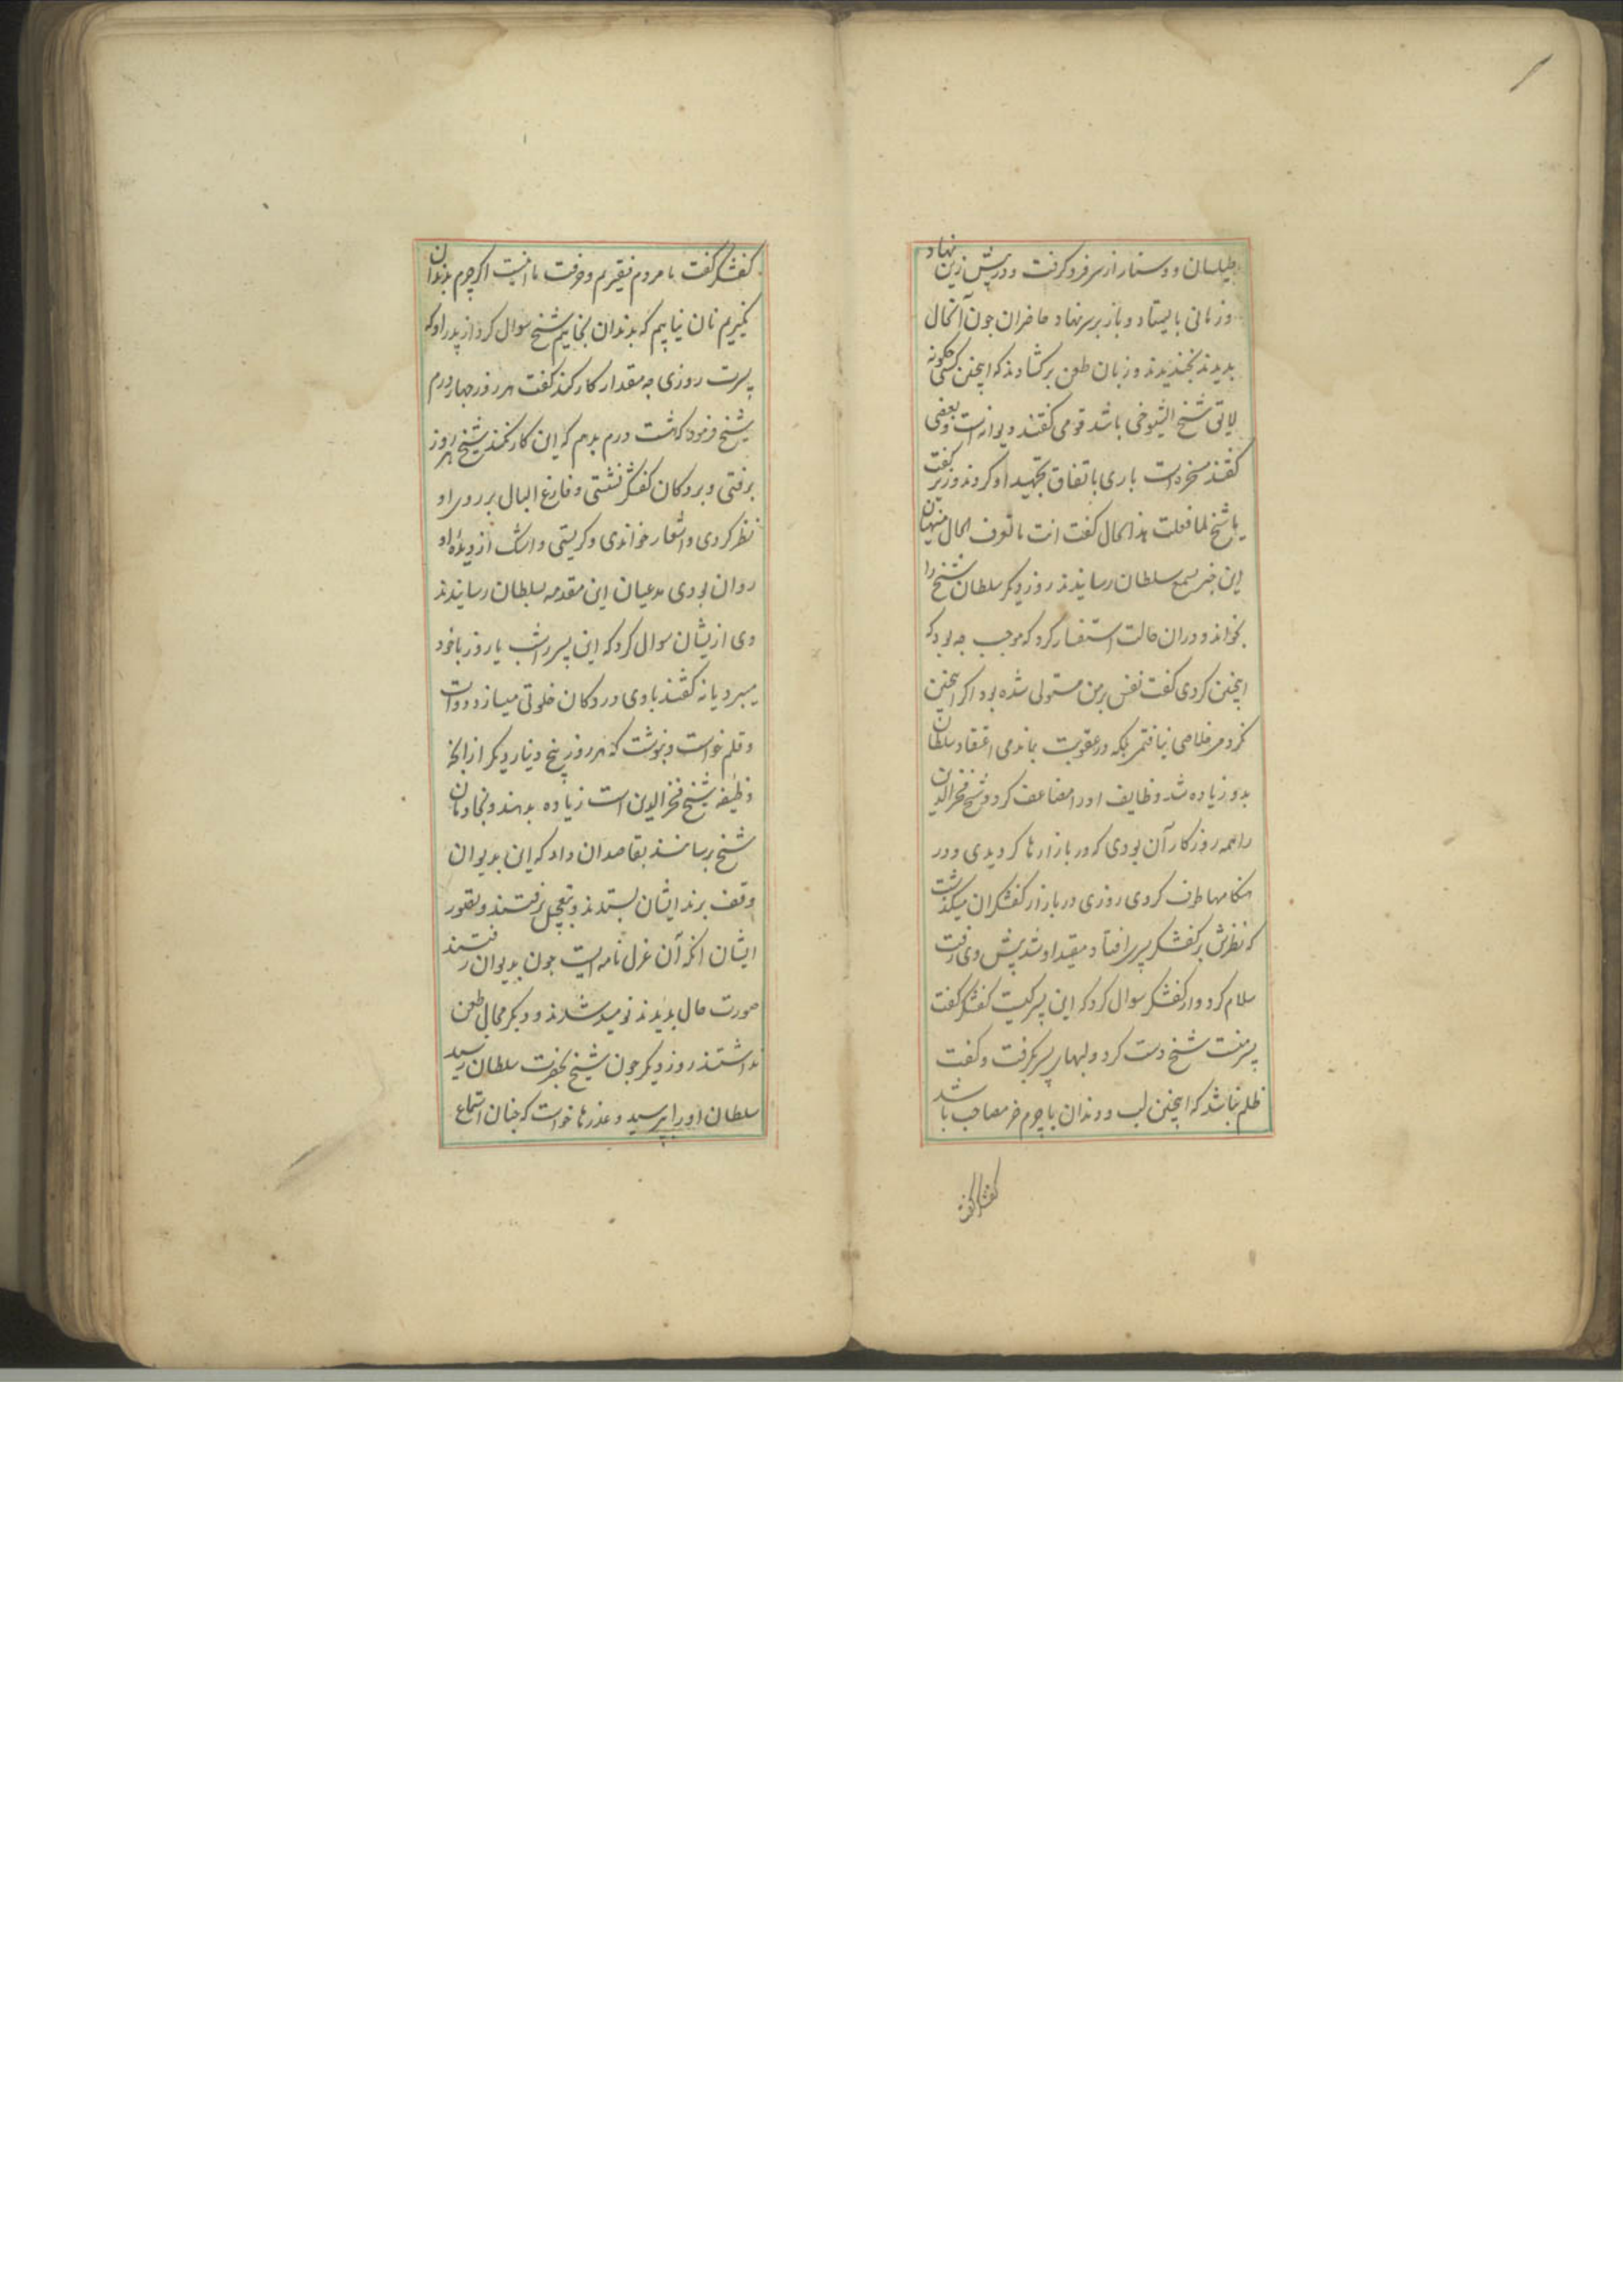 طیلسان و دستار از سر فرو گرفت و در پیش زین نهاد
و زمانی بایستاد و باز بر سر نهاد حاضران جون آنحال
بدیدند بخندیدند و زبان طعن برکشادند که اینچنین کسی چکونه
لایق شیخ الشیوخی باشد قومی کفتند دیوانه است و بعضی
کفتند مسخره است باری باتفاق تجهید او کردند وزیر کفت
یا شیخ لما فعلت هذا الحال کفت انت ما تعرف الحال منهیان
این خبر بسمع سلطان رسانیدند روز دیکر سلطان شیخ را
بخواند و دران حالت استفسار کرد که موجب چه بود که
اینچنین کردی کفت نفس بر من مستولی شده بود اکر اینچنین
نکردمی خلاصی نیافتمی بلکه در عقوبت بماندمی اعتقاد سلطان
بدو زیاده شد وظایف او را مضاعف کرد و شیخ فخرالدین
را همه روز کار آن بودی که در بازارها کردیدی و در
هنکامها طرف کردی روزی در بازار کفشکران میکذشت
که نظرش بر کفشکر پسری افتاد مقید او شد پیش وی رفت
سلام کرد و از کفشکر سوال کرد که این پسر کیست کفشکر کفت
پسر منست شیخ دست کرد و لبهای پسر بکرفت و کفت
ظلم نباشد که اینچنین لب و دندان با چرم خر مصاحب باشد
کفشکر کفت
کفشکر کفت ما مردم فقیریم و حرفت ما اینست اکر چرم بدندان
نکیریم نان نیابیم که بدندان بخاییم شیخ سوال کرد از پدر او که
پسرت روزی چه مقدار کار کند کفت هر روز چهار درم
شیخ فرمود که هشت درم بدهم که این کار نکند شیخ هر روز
برفتی و بر دکان کفشکر نشستی و فارغ البال بر روی او
نظر کردی و اشعار خواندی و کریستی و اشک از دیدۀ او
روان بودی مدعیان این مقدمه بسلطان رسانیدند
وی ازیشان سوال کرد که این پسر را شب یا روز با خود
میبرد یا نه کفتند با وی در دکان خلوتی میسازد دوات
و قلم خواست و بنوشت که هر روز پنج دینار دیکر از انچه
وظیفه شیخ فخرالدین است زیاده بدهند و بخادمان
شیخ برسانند بقاصدان داد که این بدیوان
وقف برند ایشان بستدند و بتعجیل برفتند و تصور
ایشان انکه آن عزل نامه ایست جون بدیوان رفتند
صورت حال بدیدند نومید شدند و دیکر مجال طعن
نداشتند روز دیکر جون شیخ بحضرت سلطان رسید
سلطان او را بپرسید و عذرها خواست که جنان استماع